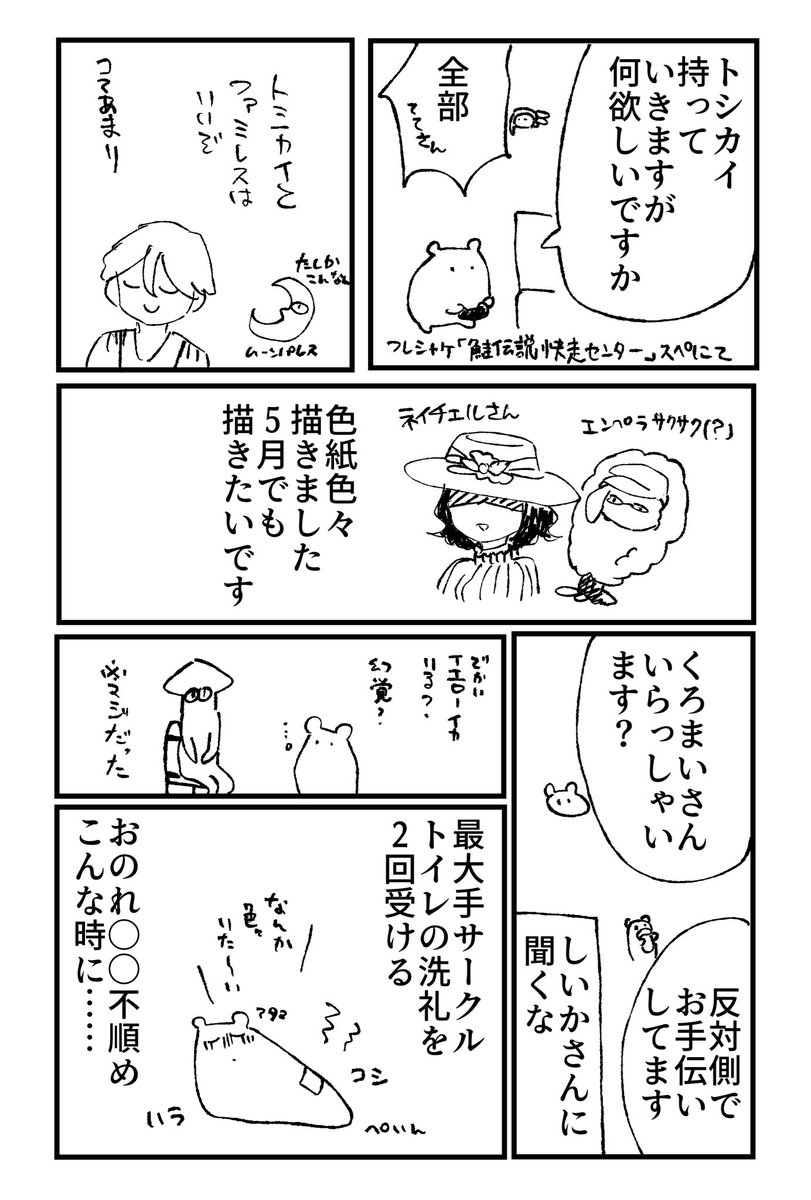 トシカイ
持って
いきますが
何欲しいですか
全部
ててさん
フレシャケ「鮭伝説快走センター」スペにて
トシカイと
ファミレスは
いいぞ
コてあまり
たしか
こんなの
ムーンパレス
エンペラサクサク(?)
ネイチェルさん
色紙色々
描きました
5月でも
描きたいです
くろまいさん
いらっしゃい
ます?
反対側で
お手伝い
してます
しいかさんに
聞くな
でかい
イエローイカ
いるっ、
幻覚?
…。
※マジだった
最大手サークル
トイレの洗礼を
2回受ける
なんか
色々
いた〜い
アタマ
コシ
ハラ
ぺいん
おのれ○○不順め
こんな時に……